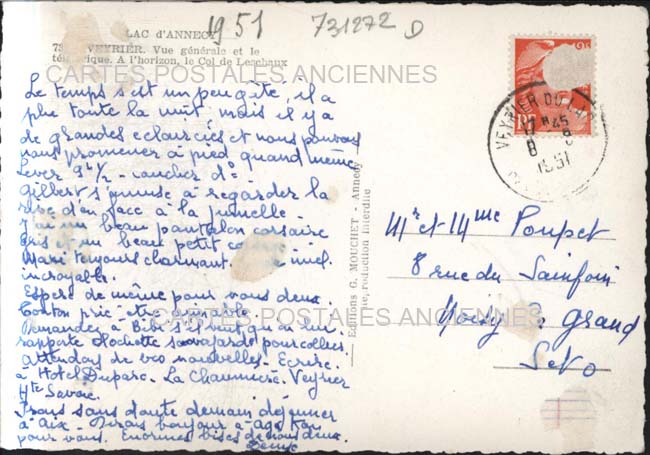 1951
731272 D
LAC d'ANNECY
VEYRIER. Vue générale et le
A l'horizon, le Col de Leschaux
CARTES POSTALES ANCIENNES
Le temps s'est un peu gâté, il a
plu toute la nuit, mais il y a
de grandes eclaircies et nous pouvons
nous promener à pied quand même
Lever 9h 1/2 - coucher do -
Gilbert s'amuse à regarder la
rive d'en face à la jumelle -
J'ai un beau pantalon corsaire
gris et un beau petit
Mari toujours charmant.
incroyable.
Espère de même pour vous deux.
prière être aimable
Demander à Bébé s'il veut qu'on lui
rapporte clochette savoyarde pour
Attendons de vos nouvelles - Ecrire
à Hotel Duparc - La Chaumière - Veyrier
Hte Savoie.
Irons sans doute demain déjeuner
à Aix - Dirais bonjour à
pour vous. Enormes bises de nous deux.
Editions G. MOUCHET - Annecy
reproduction interdite
VEYRIER DU LAC
17H45
8 8
1951
Mr et Mme Poupet
8 rue du Sainfoin
Noisy le Grand
S et O
CARTES POSTALES ANCIENNES